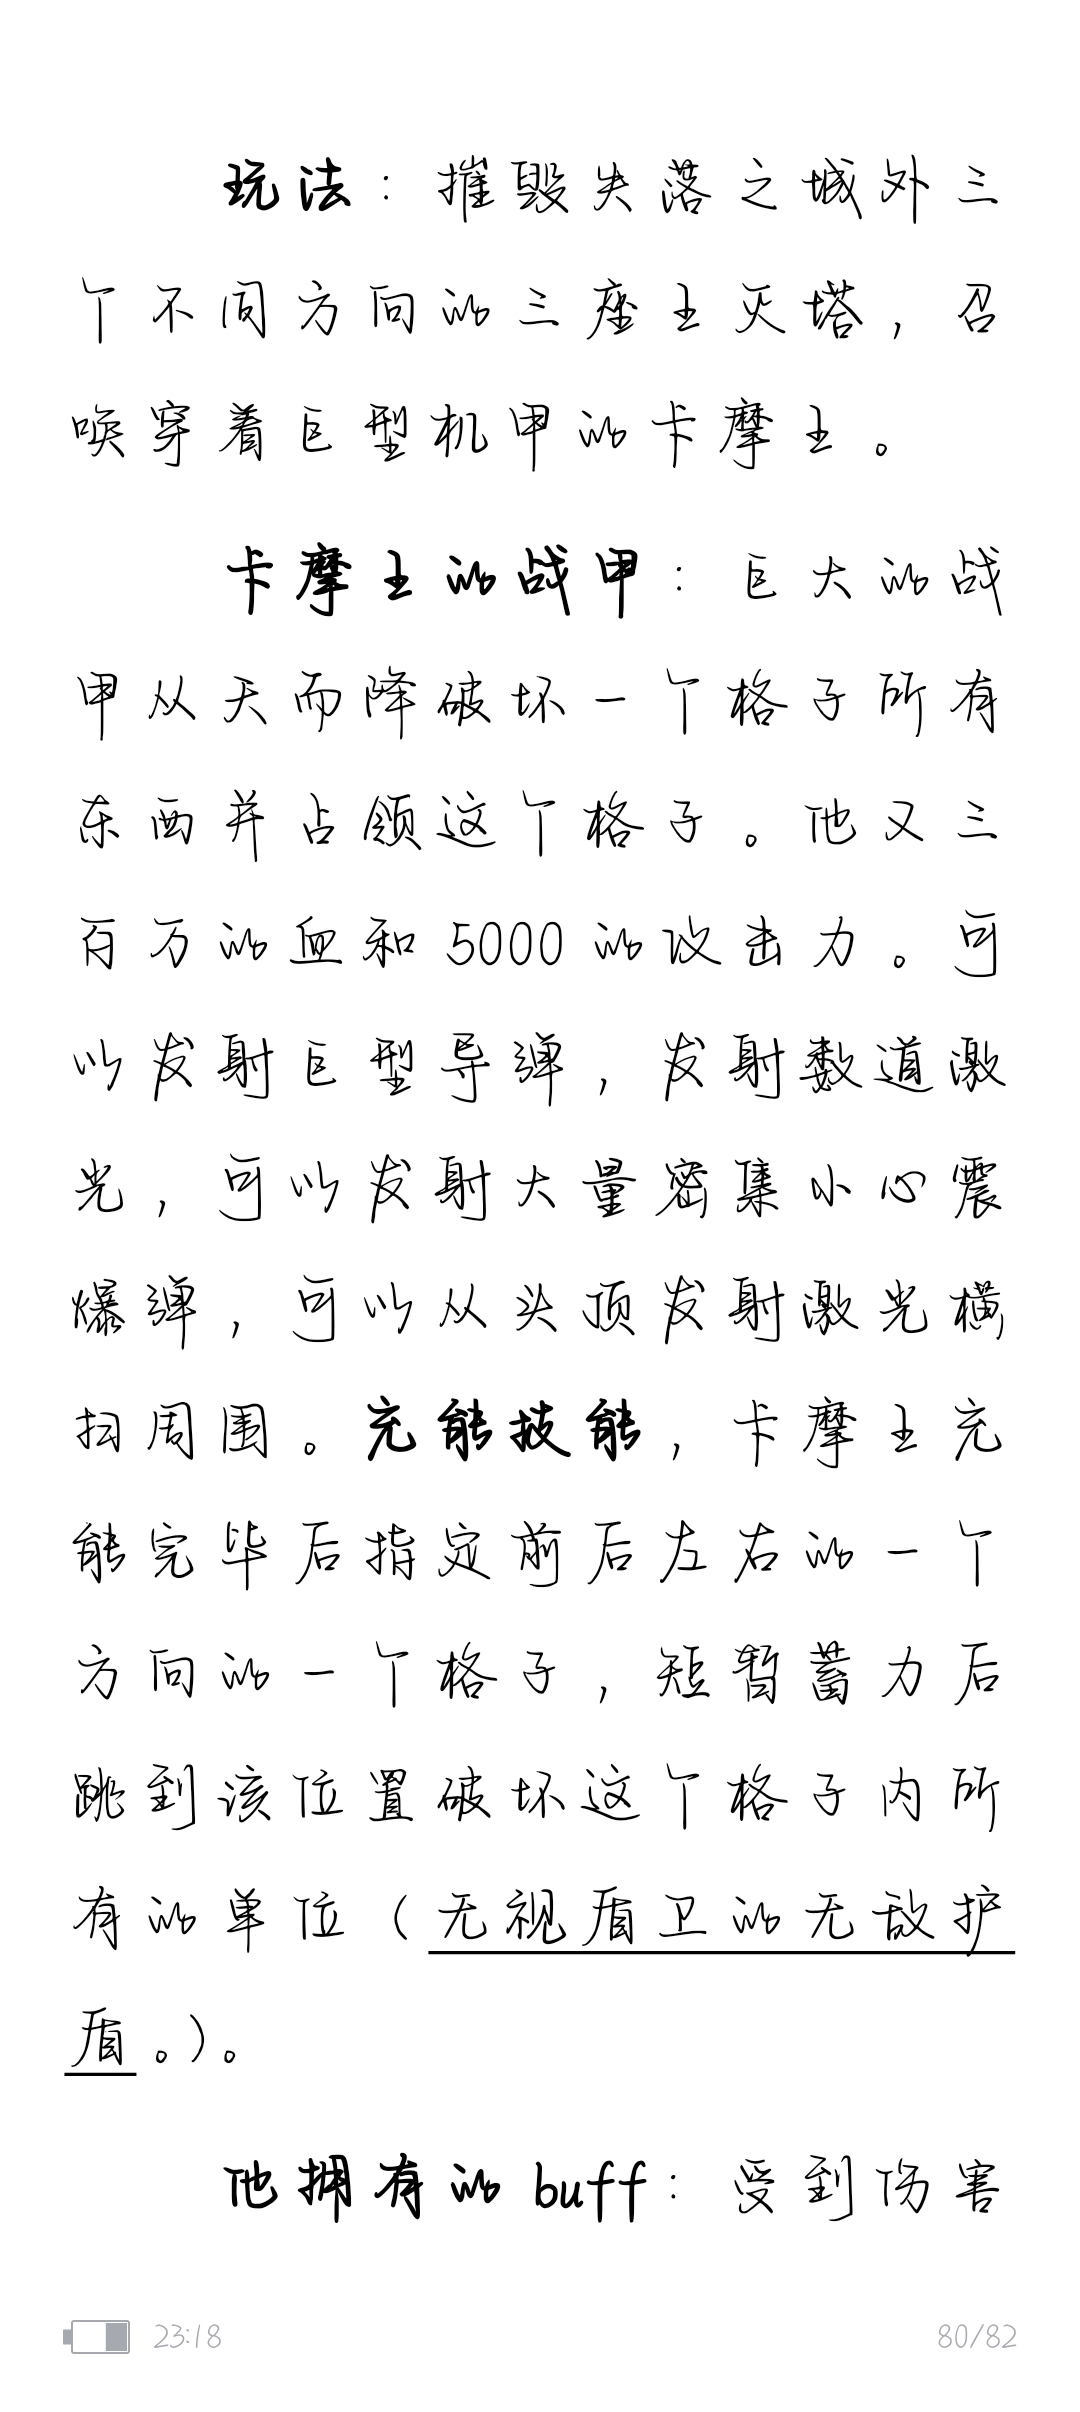 玩法：摧毁失落之城外三
个不同方向的三座主灭塔，召
唤穿着巨型机甲的卡摩王。
卡摩王的战甲：巨大的战
甲从天而降破坏一个格子所有
东西并占领这个格子。他又三
百万的血和5000的攻击力。可
以发射巨型导弹，发射数道激
光，可以发射大量密集小心震
爆弹，可以从头顶发射激光横
扫周围。充能技能，卡摩王充
能完毕后指定前后左右的一个
方向的一个格子，短暂蓄力后
跳到该位置破坏这个格子内所
有的单位（无视盾卫的无敌护
盾。）。
他拥有的buff：受到伤害
23:18 80/82